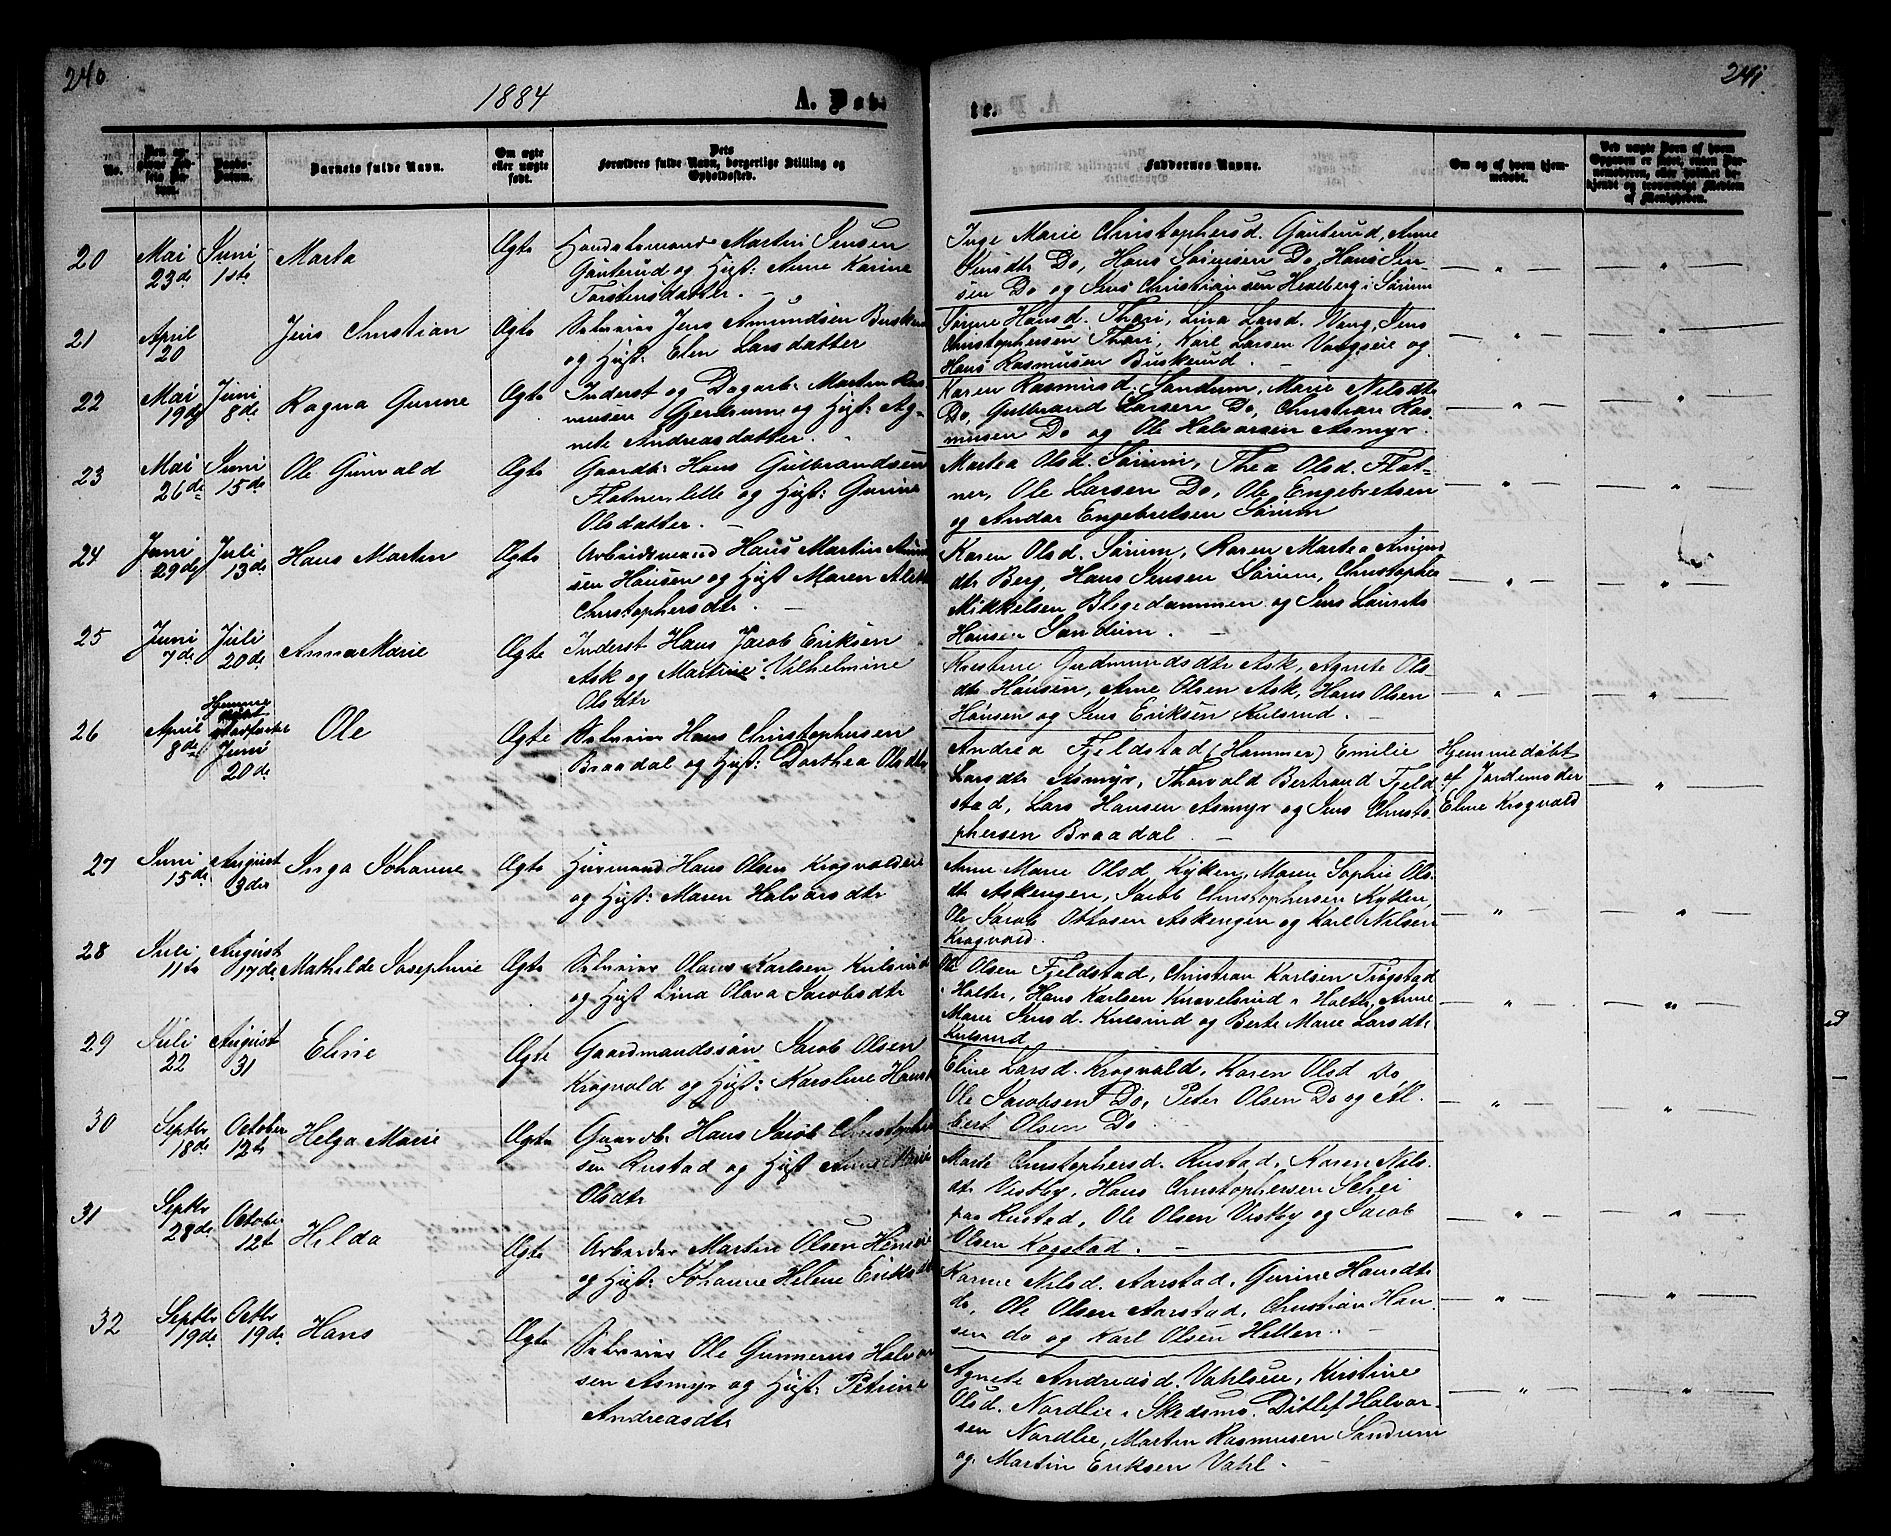 240
1884
A. Døb-
te.
241
No.
Barnets fulde Navn.
Om ægte
eller uægte
født.
Dets
Forældres fulde Navn, borgerlige Stilling og
Opholdssted.
Faddernes Navne.
Om og af hvem hjem-
medøbt.
20 Mai 23de Juni 1ste Marta Ægte
Martin Jensen
Gauterud og Hust: Anne Karine
Torstensdatter.
Inge Marie Christophersd. Gauterud, Anne
Jensdtr Do, Hans Sørensen Do, Hans Jen-
sen Do og Jens Christiansen Hexeberg i Sørum
21 April 20 Jens Christian Ægte
Selveier Jens Amundsen
og Hust: Elen Larsdatter
Hansd. Thari, Lina Larsd. Vang, Jens
Christophersen Thari, Karl Larsen og
Hans Rasmusen Buskerud.
22 Mai 19de Juni 8de Ragna Gurine Ægte
Inderst og Dagarb: Martin Ras-
musen Gjerdrum og Hust: Ag-
nete Andreasdatter.
Karen Rasmusd. Sandum, Marie Nilsdtr
Do, Gulbrand Larsen Do, Christian Ras-
musen Do og Ole Halvorsen Asmyr.
23 Mai 26de Juni 15de Ole Gunvald Ægte
Gaardbr: Hans Gulbrandsen
Flatner lille og Hust: Gurine
Olsdatter.
Martea Olsd. Sørum, Thea Olsd. Flat-
ner, Ole Larsen Do, Ole Engebretsen
og Andor Engebretsen Sørum
24 Juni 29de Juli 13de Hans Martin Ægte
Arbeidsmand Hans Martin
sen Hansen og Hust Maren
Christophersdtr.
Karen Olsd. Sørum, Karen Martea
dtr Berg, Hans Jensen Sørum, Christopher
Mikkelsen Blegedammen og Jens Laurits
Hansen Sandum.
25 Juni 7de Juli 20de Anna Marie Ægte
Inderst Hans Jacob Eriksen
Ask og Martine Vilhelmine
Olsdtr
Kirstine Gudmundsdtr Ask, Agnete Ols-
dtr Hansen, Arne Olsen Ask, Hans Olsen
Hansen og Jens Eriksen Kulsrud.
26 April 8de Hjemme
Juni 20de Ole Ægte
Selveier Hans Christophersen
Braadal og Hust: Dorthea Olsdtr
Andrea Fjeldstad (Hammer) Emilie
Larsdtr Asmyr, Thorvald Bertrand Fjeld
stad, Lars Hansen Asmyr og Jens Christo
phersen Braadal.
Hjemmedøbt
af Jordemoder
Eline Krogvold
27 Juni 15de August 3die Inga Johanne Ægte
Huusmand Hans Olsen Krogvoldeie
og Hust: Maren Halvorsdtr
Anne Marie Olsd Kykken, Maren Sophie Ols
dtr Askengen, Jacob Christophersen Kykken,
Ole Jacob Ottosen Askengen og Karl Nilsen
Krogvold.
28 Juli 11te August 17de Mathilde Josephine Ægte
Selveier Olaus Karlsen Kulsrud
og Hust Lina Olava Jacobsdtr
Ole Olsen Fjeldstad, Christian Karlsen Trøgstad
Holter, Hans Karlsen Knavelsrud i Holter, Anne
Marie Jensd. Kulsrud og Berte Marie Larsdtr
Kulsrud
29 Juli 22 August 31 Eline Ægte
Gaardmandssøn Jacob Olsen
Krogvold og Hust: Karoline Hans
Eline Larsd. Krogvold, Karen Olsd Do
Ole Jacobsen Do, Peter Olsen Do og Al-
bert Olsen Do
30 Septbr 18de October 12te Helga Marie Ægte
Gaardbr. Hans Jacob Christopher
sen Rustad og Hust Anne Marie
Olsdtr
Marte Christophersd. Rustad, Karen Nils-
dtr Vestby, Hans Christophersen Schei
paa Rustad, Ole Olsen Vestby og Jacob
Olsen Kogstad.
31 Septbr 28de October 12te Hilda Ægte
Arbeider Martin Olsen
og Hust: Johanne Helene Eriksdtr
Karine Nilsd. Aarstad, Gurine Hansdtr
do, Ole Olsen Aarstad, Christian Han-
sen do og Karl Olsen Hellen.
32 Septbr 19de Octbr 19de Hans Ægte
Selveier Ole Gunnerius Halvor
sen Asmyr og Hust: Petrine
Andreasdtr
Agnete Andreasd. Vahlseie, Kirstine
Olsd. Nordlie i Skedsmo, Ditlef Halvor-
sen Nordlie, Martin Rasmusen Sandum
og Martin Eriksen Vahl.